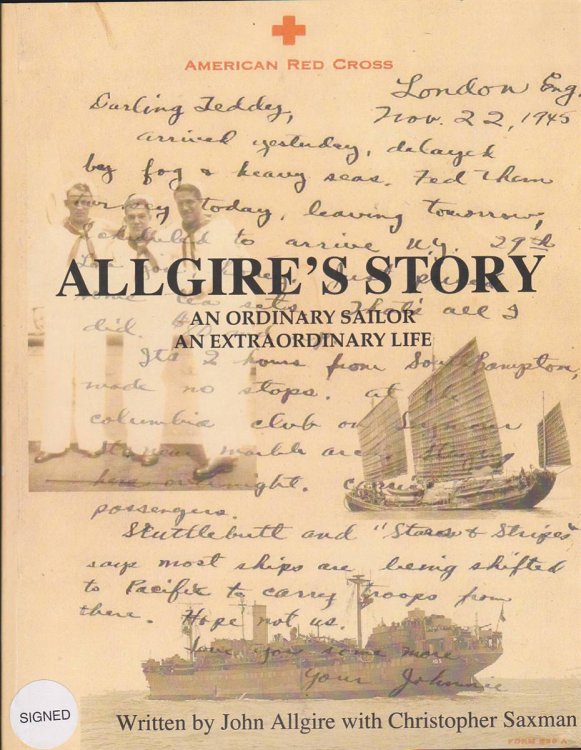 AMERICAN RED CROSS
London Eng.
Darling Teddy, Nov. 22, 1945
arrived yesterday, delayed
by fog & heavy seas. Fed them
turkey today, leaving tomorrow,
scheduled to arrive N.Y. 29th
ALLGIRE'S STORY
some tea sets. That's all I
AN ORDINARY SAILOR
did.
AN EXTRAORDINARY LIFE
Its 2 hours from Southampton,
made no stops. at the
columbia club on Seymour
St near marble arch. Staying
here overnight.
passengers.
Scuttlebutt and "Stars & Stripes"
says most ships are being shifted
to Pacific to carry troops from
there. Hope not us.
love you some more
Your Johnnie
SIGNED
Written by John Allgire with Christopher Saxman
FORM 539 A